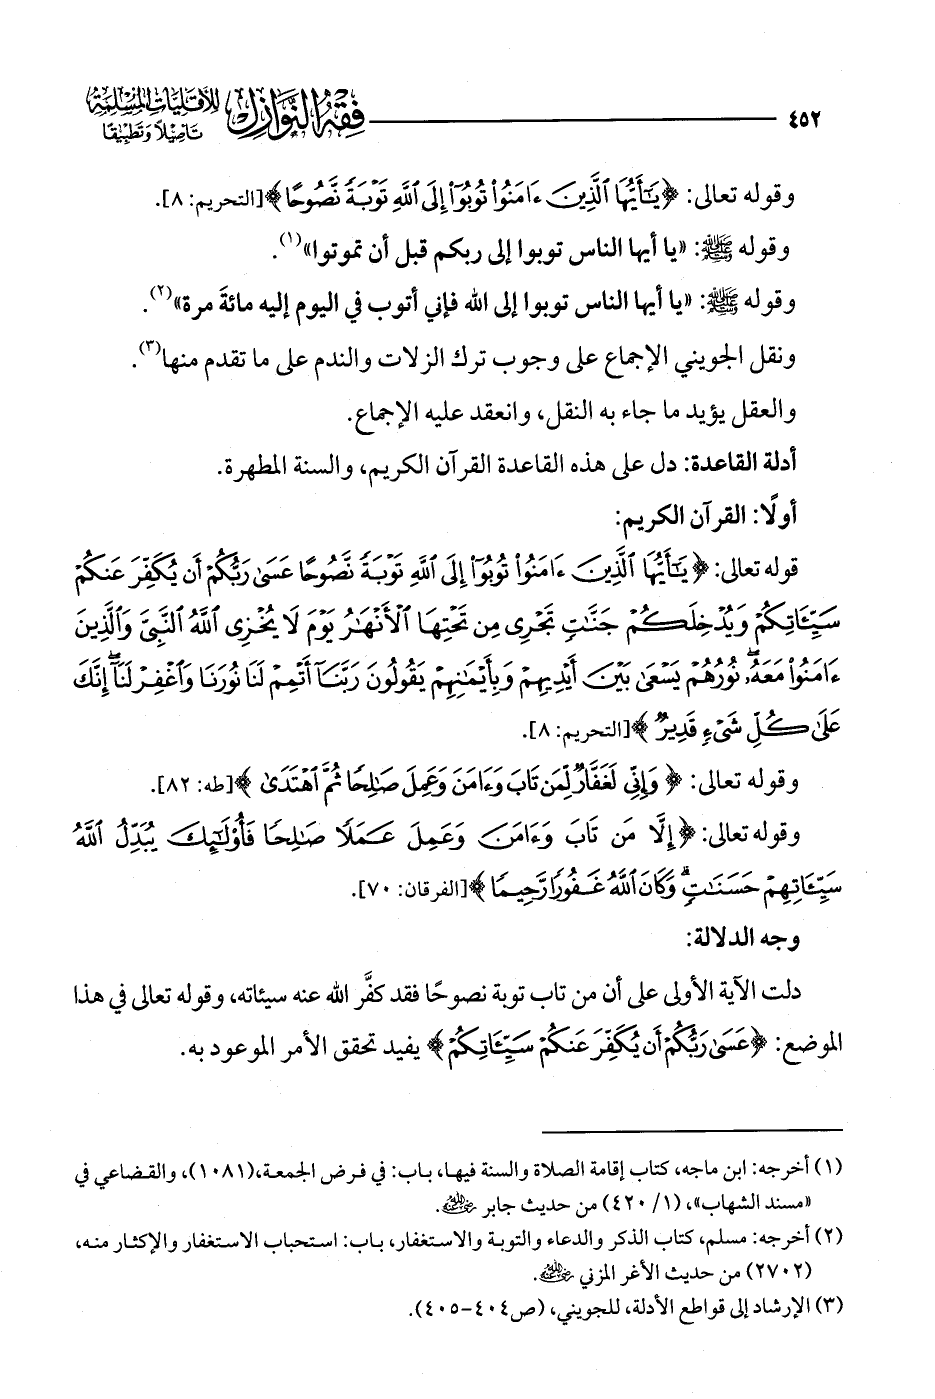 ٤٥٢
فقه النوازل للأقليات المسلمة
تأصيلًا وتطبيقًا
وقوله تعالى: ﴿يَٰٓأَيُّهَا ٱلَّذِينَ ءَامَنُوا۟ تُوبُوٓا۟ إِلَى ٱللَّهِ تَوْبَةً نَّصُوحًا﴾[التحريم: ٨].
وقوله ﷺ: «يا أيها الناس توبوا إلى ربكم قبل أن تموتوا»(١).
وقوله ﷺ: «يا أيها الناس توبوا إلى الله فإني أتوب في اليوم إليه مائةَ مرة»(٢).
ونقل الجويني الإجماع على وجوب ترك الزلات والندم على ما تقدم منها(٣).
والعقل يؤيد ما جاء به النقل، وانعقد عليه الإجماع.
أدلة القاعدة: دل على هذه القاعدة القرآن الكريم، والسنة المطهرة.
أولًا: القرآن الكريم:
قوله تعالى: ﴿يَٰٓأَيُّهَا ٱلَّذِينَ ءَامَنُوا۟ تُوبُوٓا۟ إِلَى ٱللَّهِ تَوْبَةً نَّصُوحًا عَسَىٰ رَبُّكُمْ أَن يُكَفِّرَ عَنكُمْ
سَيِّـَٔاتِكُمْ وَيُدْخِلَكُمْ جَنَّٰتٍ تَجْرِى مِن تَحْتِهَا ٱلْأَنْهَٰرُ يَوْمَ لَا يُخْزِى ٱللَّهُ ٱلنَّبِىَّ وَٱلَّذِينَ
ءَامَنُوا۟ مَعَهُۥ ۖ نُورُهُمْ يَسْعَىٰ بَيْنَ أَيْدِيهِمْ وَبِأَيْمَٰنِهِمْ يَقُولُونَ رَبَّنَآ أَتْمِمْ لَنَا نُورَنَا وَٱغْفِرْ لَنَآ ۖ إِنَّكَ
عَلَىٰ كُلِّ شَىْءٍ قَدِيرٌ﴾[التحريم: ٨].
وقوله تعالى: ﴿وَإِنِّى لَغَفَّارٌ لِّمَن تَابَ وَءَامَنَ وَعَمِلَ صَٰلِحًا ثُمَّ ٱهْتَدَىٰ﴾[طه: ٨٢].
وقوله تعالى: ﴿إِلَّا مَن تَابَ وَءَامَنَ وَعَمِلَ عَمَلًا صَٰلِحًا فَأُو۟لَٰٓئِكَ يُبَدِّلُ ٱللَّهُ
سَيِّـَٔاتِهِمْ حَسَنَٰتٍ ۗ وَكَانَ ٱللَّهُ غَفُورًا رَّحِيمًا﴾[الفرقان: ٧٠].
وجه الدلالة:
دلت الآية الأولى على أن من تاب توبة نصوحًا فقد كفَّر الله عنه سيئاته، وقوله تعالى في هذا
الموضع: ﴿عَسَىٰ رَبُّكُمْ أَن يُكَفِّرَ عَنكُمْ سَيِّـَٔاتِكُمْ﴾ يفيد تحقق الأمر الموعود به.
(١) أخرجه: ابن ماجه، كتاب إقامة الصلاة والسنة فيها، باب: في فرض الجمعة،(١٠٨١)، والقضاعي في
«مسند الشهاب»، (١/ ٤٢٠) من حديث جابر رضي الله عنه.
(٢) أخرجه: مسلم، كتاب الذكر والدعاء والتوبة والاستغفار، باب: استحباب الاستغفار والإكثار منه،
(٢٧٠٢) من حديث الأغر المزني رضي الله عنه.
(٣) الإرشاد إلى قواطع الأدلة، للجويني، (ص٤٠٤-٤٠٥).